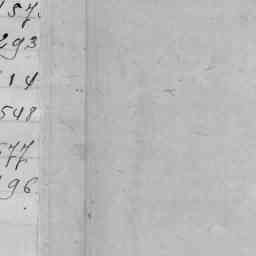 157.
293
14
548
577
96